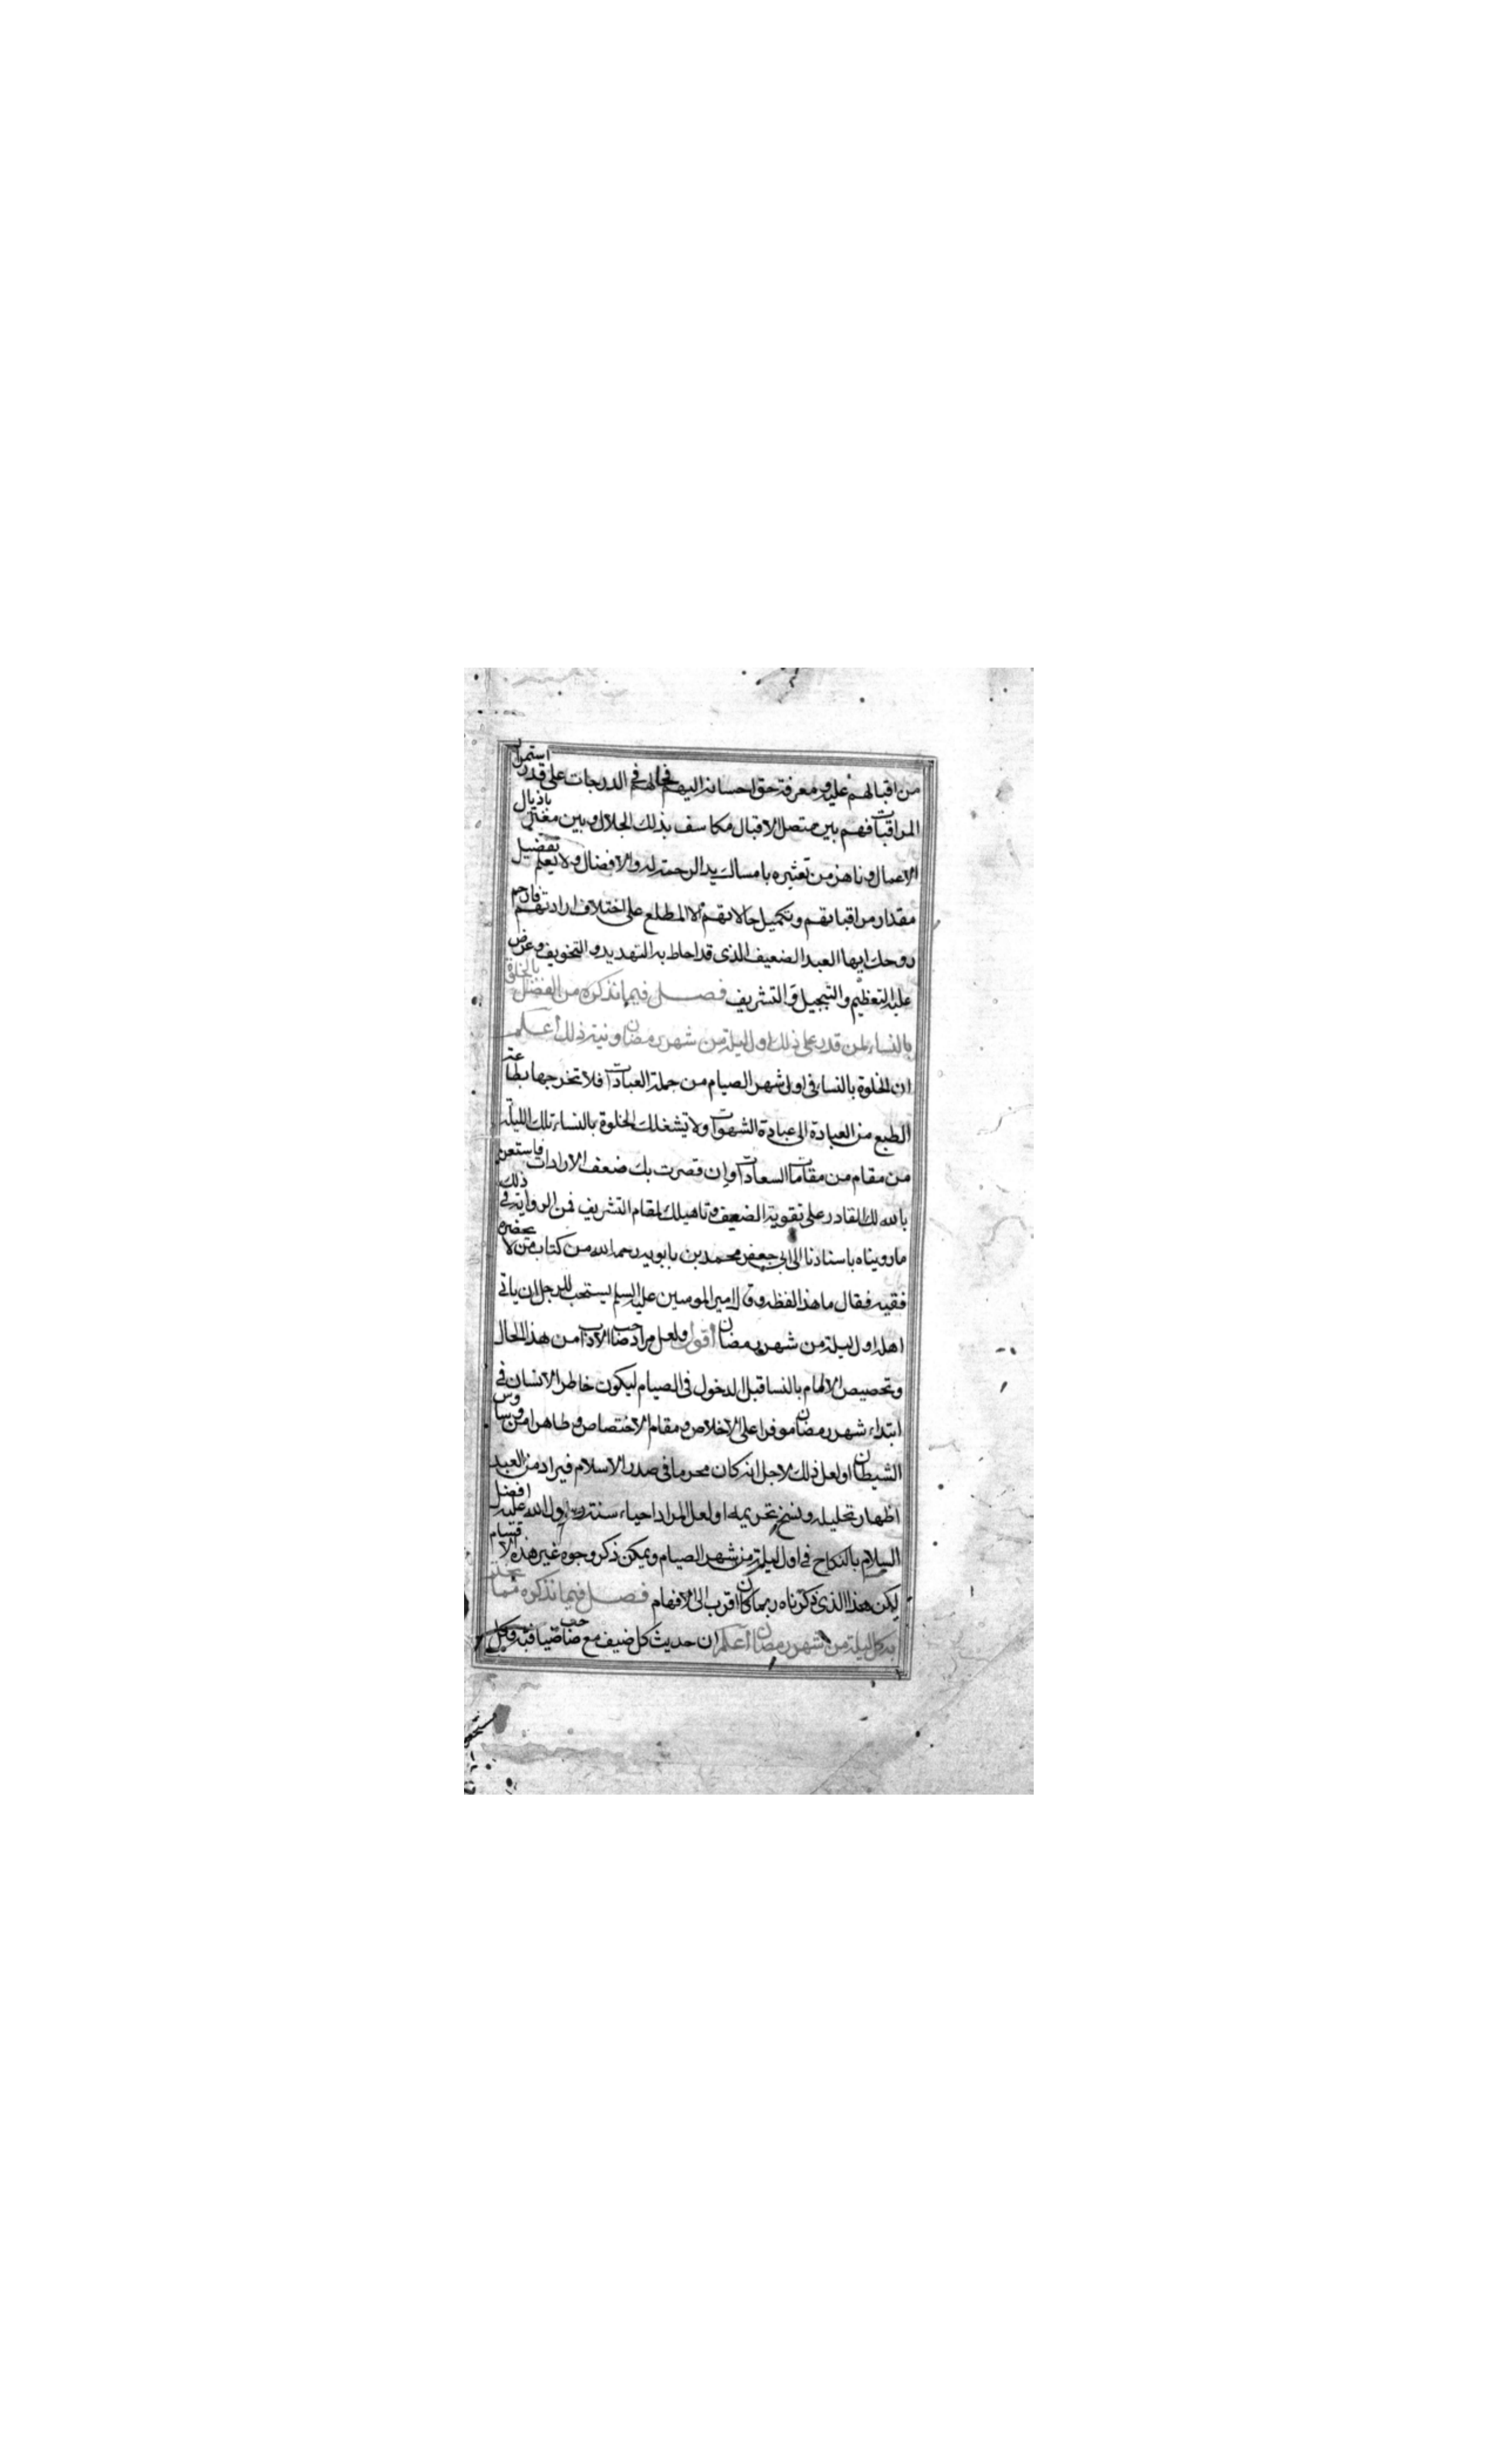 من اقبالهم عليه و معرفة حق احسانه اليهم فحالهم في الدرجات على قدر استمرار
المراقبات فهم بين متصل الاقبال مكاسف بذلك الجلال و بين متعثر باذيال
الاعمال و ناهز من تعثيره بامساك يد الرحمة له و الافضال و لا يعلم تفضيل
مقدار مراقباتهم و تكميل حالاتهم الا المطلع على اختلاف ارادتهم فارحم
روحك ايها العبد الضعيف الذى قد احاط به التهديد و التخويف و عرض
عليه التعظيم و التبجيل و التشريف فصل فيما نذكره من الفضل بالخلوة
بالنساء لمن قدر على ذلك اول ليلة من شهر رمضان و نية ذلك أعلم
ان الخلوة بالنساء فى اول شهر الصيام من جملة العبادات فلا تخرجها بطاعة
الطبع من العبادة الى عبادة الشهوات و لا تشغلك الخلوة بالنساء تلك الليلة
من مقام من مقامات السعادات و ان قصرت بك ضعف الارادات فاستعن
بالله لك القادر على تقوية الضعيف و تاهيلك لمقام التشريف فمن الرواية فى ذلك
ما رويناه باسنادنا الى ابى جعفر محمد بن بابويه رحمه الله من كتاب من لا يحضره
فقيه فقال ما هذا لفظه و قال امير المومنين عليه السلم يستحب للرجل ان ياتى
اهله اول ليلة من شهر رمضان أقول و لعل مراد صاحب الاداب من هذا الحال
و تخصيص الالمام بالنسا قبل الدخول فى الصيام ليكون خاطر الانسان فى
ابتداء شهر رمضان موفرا على الاخلاص و مقام الاختصاص و طاهرا من وساوس
الشيطان او لعل ذلك لاجل انه كان محرما فى صدر الاسلام فيراد من العبد
اظهار تحليله و نسخ تحريمه او لعل المراد احياء سنة رسول الله عليه افضل
السلام بالنكاح فى اول ليلة من شهر الصيام و يمكن ذكر وجوه غير هذه الاقسام
لكن هذا الذى ذكرناه ربما كان اقرب الى الافهام فصل فيما نذكره مما يختم
به كل ليلة من شهر رمضان أعلم ان حديث كل ضيف مع صاحب ضيافته و كل